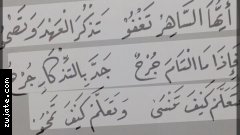 أيها الساهر تغفو تذكر العهد وتصحو
فإذا ما التأم جرح جد بالتذكار جرح
فتعلم كيف تنسى وتعلم كيف تمحو
zujate.com